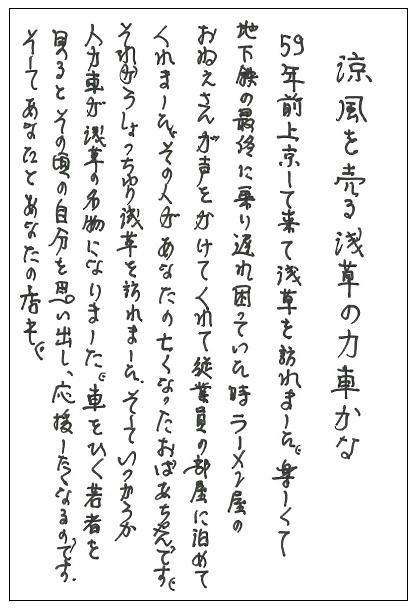 涼風を売る浅草の力車かな
59年前上京して来て浅草を訪れました。楽しくて
地下鉄の最終に乗り遅れ困っていた時ラーメン屋の
おねえさんが声をかけてくれて従業員の部屋に泊めて
くれました。その人があなたの亡くなったおばあちゃんです。
それからしょっちゅう浅草を訪れました。そしていつからか
人力車が浅草の名物になりました。車をひく若者を
見るとその頃の自分を思い出し、応援したくなるのです。
そしてあなたとあなたの店も。